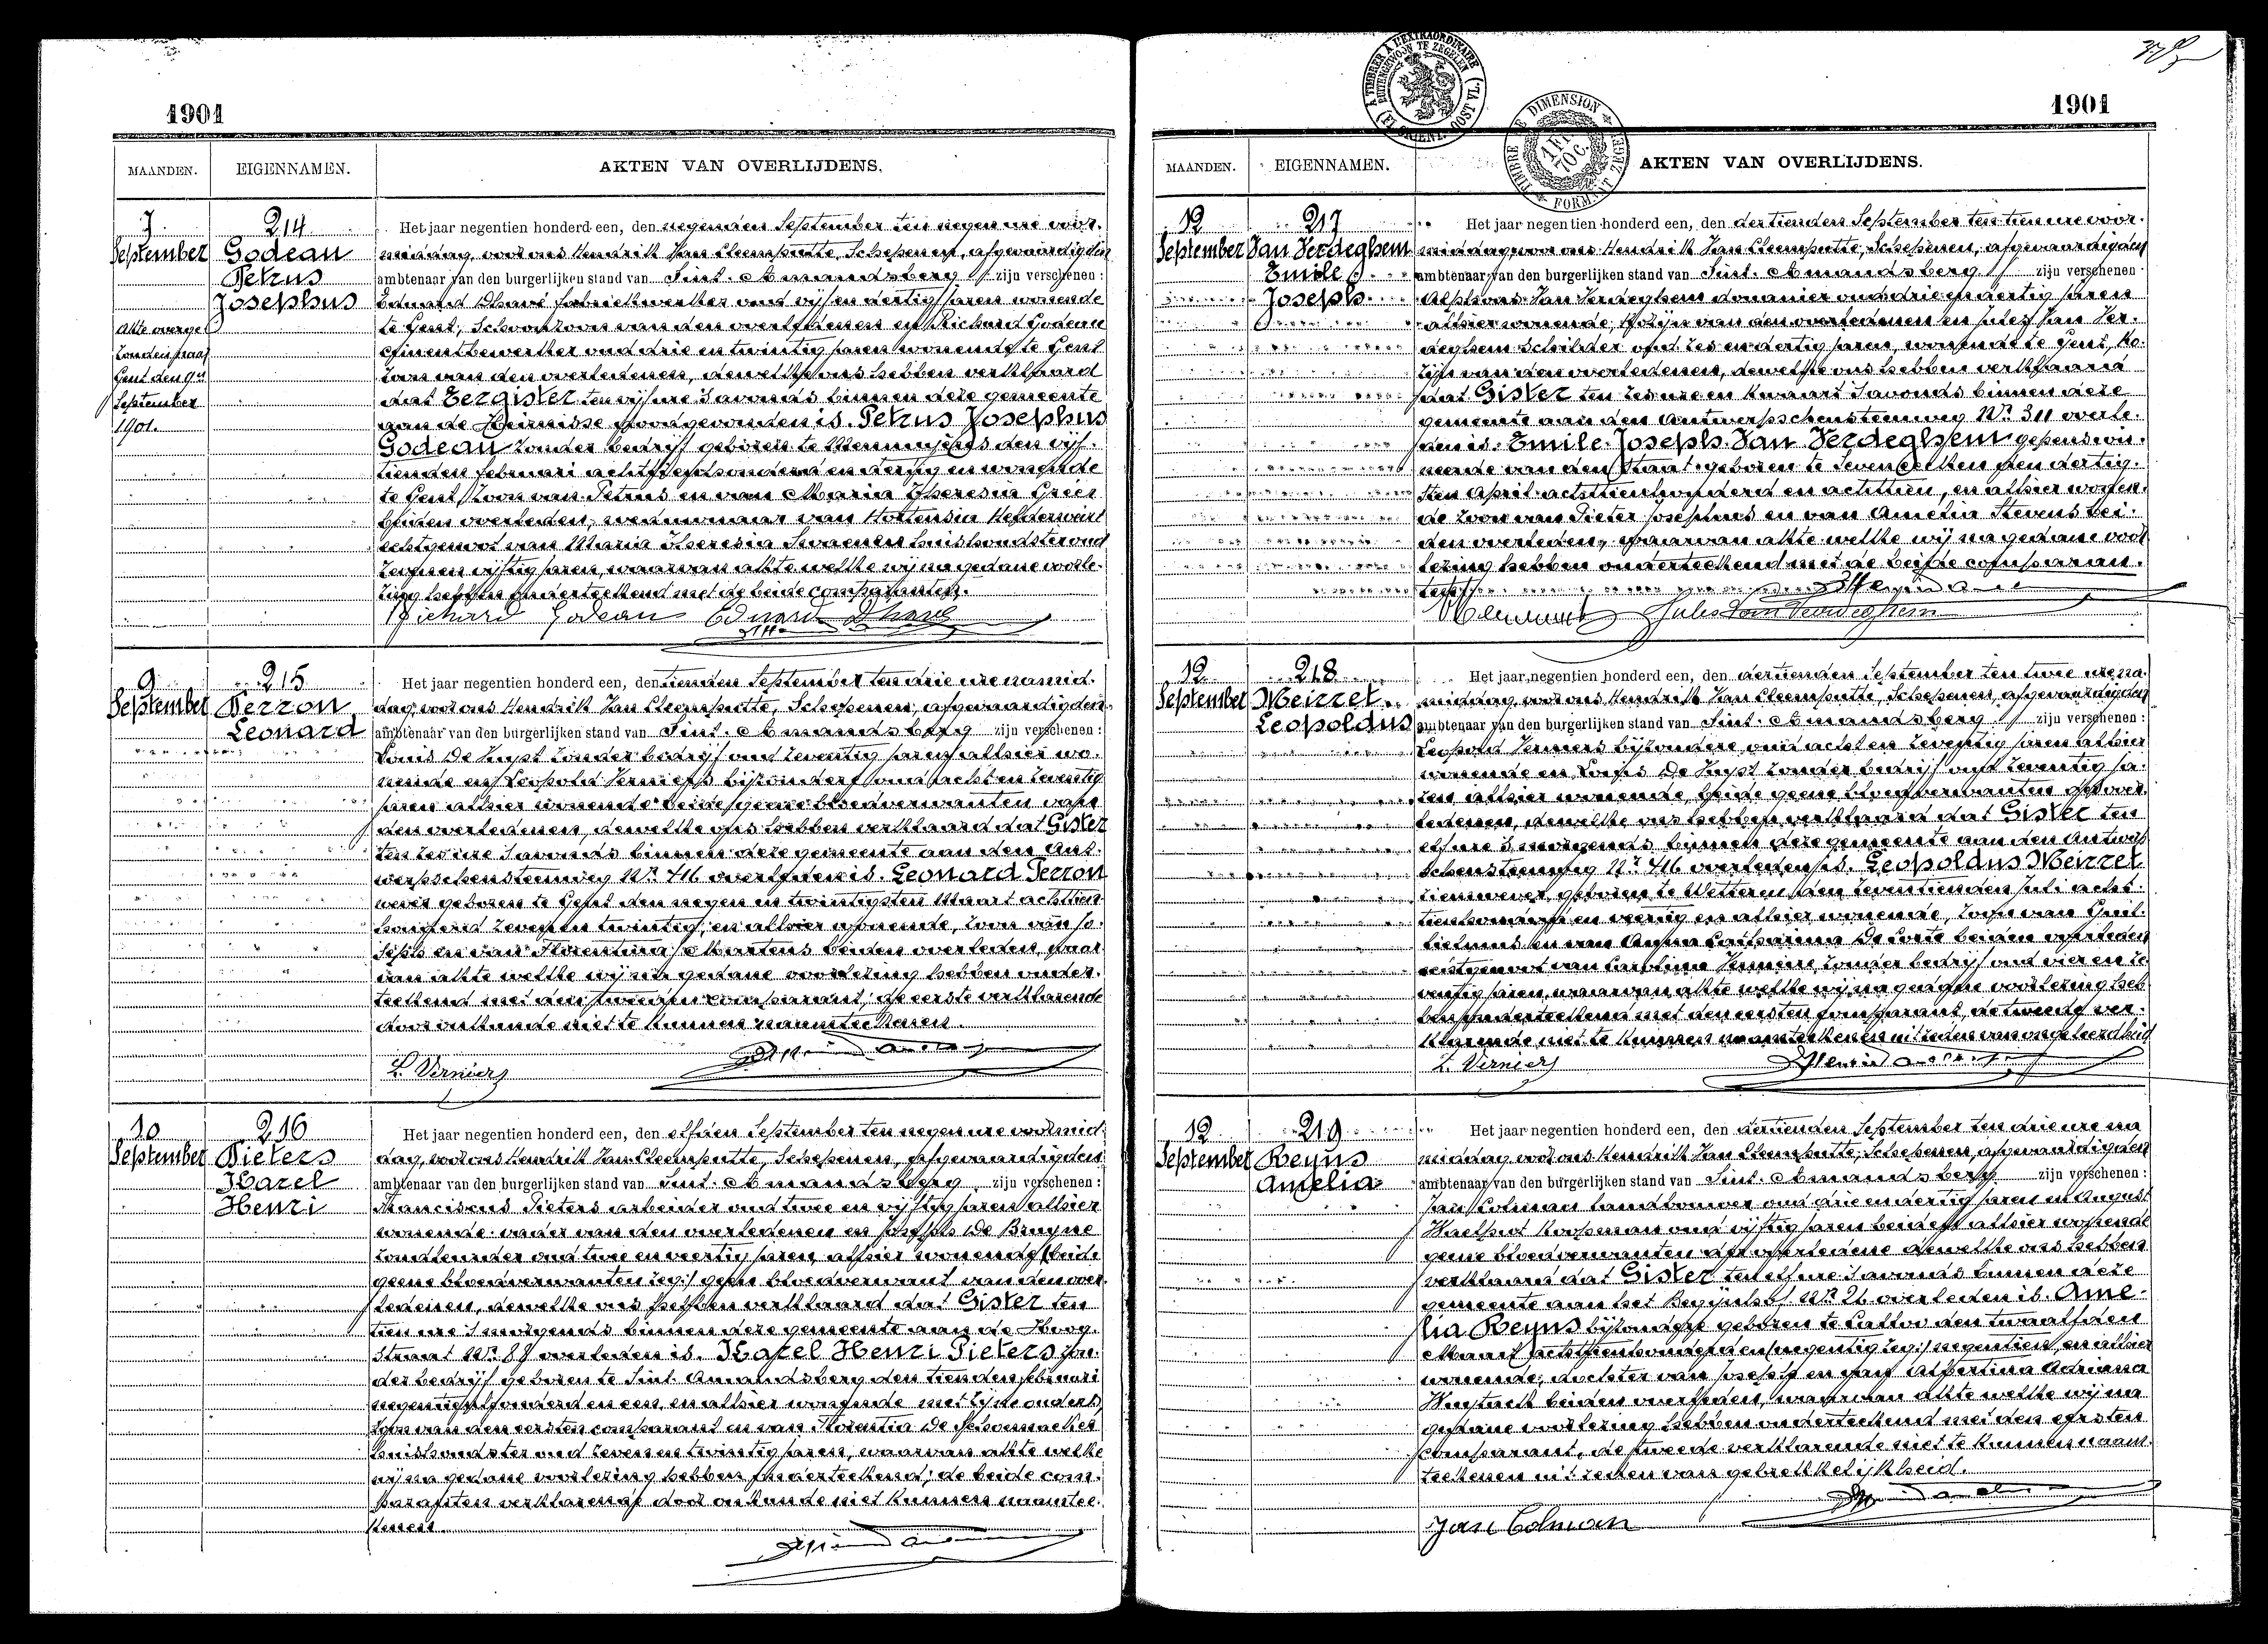 1901
MAANDEN. EIGENNAMEN. AKTEN VAN OVERLIJDENS.
7 September
214
Godeau
Petrus
Josephus
Akte overge
zonden naar
Gent den 9en
September
1901.
Het jaar negentien honderd een, den negenden September ten negen ure voor-
middag, voor ons Hendrik Van Cleemputte, Schepenen, afgevaardigden
ambtenaar van den burgerlijken stand van Sint-Amandsberg zijn verschenen:
Eduard Dhave fabriekwerker oud vijf en dertig jaren wonende
te Gent, Schoonzoon van den overledenen en Richard Godeau
cimentbewerker oud drie en twintig jaren wonende te Gent
zoon van den overledenen, dewelke ons hebben verklaard
dat Eergister ten vijf ure s'avonds binnen deze gemeente
aan de Heirnisse dood gevonden is. Petrus Josephus
Godeau zonder bedrijf geboren te den vijf-
tienden februari achttien honderd en dertig en wonende
te Gent, Zoon van Petrus en van Maria Theresia
beiden overleden, weduwnaar van Hortensia
echtgenoot van Maria Theresia huishoudster oud
jaren, waarvan akte welke wij na gedane voorle-
zing hebben onderteekend met de beide comparanten.
Richard Godeau Eduard Dhave
9 September
215
Perron
Leonard
Het jaar negentien honderd een, den tienden September ten drie ure namid-
dag, voor ons Hendrik Van Cleemputte, Schepenen, afgevaardigden
ambtenaar van den burgerlijken stand van Sint-Amandsberg zijn verschenen:
Louis De Kupt zonder bedrijf oud zeventig jaren alhier wo-
nende en Leopold Verniers bijzondere oud acht en zeventig
jaren alhier wonende beide geene bloedverwanten van
den overledenen, dewelke ons hebben verklaard dat Gister
ten zes ure s'avonds binnen deze gemeente aan den Ant-
werpschensteenweg Nr 416 overleden is. Leonard Perron
wever geboren te Gent den negen en twintigsten Maart achttien
honderd zeven en twintig, en alhier wonende, zoon van Jo-
seph en van Florentina Martens beiden overleden, waar-
van akte welke wij na gedane voorlezing hebben onder-
teekend met den tweeden comparant, de eerste verklarende
door onkunde niet te kunnen naamteekenen.
L. Verniers
10 September
216
Pieters
Karel
Henri
Het jaar negentien honderd een, den elfden September ten negen ure voormid-
dag, voor ons Hendrik Van Cleemputte, Schepenen, afgevaardigden
ambtenaar van den burgerlijken stand van Sint-Amandsberg zijn verschenen:
Franciscus Pieters arbeider oud twee en vijftig jaren alhier
wonende vader van den overledenen en Joseph De Bruyne
landbouwer oud twee en veertig jaren alhier wonende (beide
geene bloedverwanten zeg:) geen bloedverwant van den over-
ledenen, dewelke ons hebben verklaard dat Gister ten
tien ure s'morgends binnen deze gemeente aan de Hoog-
straat Nr 89 overleden is. Karel Henri Pieters zon-
der bedrijf geboren te Sint Amandsberg den tienden februari
negentien honderd en een, en alhier wonende met zijne ouders,
zoon van den eersten comparant en van Florentia De Schoenmaeker
huishoudster oud zeven en twintig jaren, waarvan akte welke
wij na gedane voorlezing hebben onderteekend; de beide com-
paranten verklarende door onkunde niet kunnen naamtee-
kenen.
1901
MAANDEN. EIGENNAMEN. AKTEN VAN OVERLIJDENS.
12 September
217
Van Verdeghem
Emile
Joseph
Het jaar negentien honderd een, den dertienden September ten tien ure voor-
middag, voor ons Hendrik Van Cleemputte, Schepenen, afgevaardigden
ambtenaar van den burgerlijken stand van Sint-Amandsberg zijn verschenen:
Alphons Van Verdeghem douanier oud drie en dertig jaren
alhier wonende, Kozijn van den overledenen en Jules Van Ver-
deghem Schilder oud zes en dertig jaren, wonende te Gent, Ko-
zijn van den overledenen, dewelke ons hebben verklaard
dat Gister ten zes ure en kwaart s'avonds binnen deze
gemeente aan den Antwerpschensteenweg Nr 311 overle-
den is. Emile Joseph Van Verdeghem gepensioen-
neerde van den Staat geboren te Sevenecken den dertig-
sten April achttienhonderd en achttien, en alhier wonen-
de zoon van Pieter Josephus en van Amelia Stevens bei-
den overleden, waarvan akte welke wij na gedane voor-
lezing hebben onderteekend met de beide comparan-
ten.
Jules Van Verdeghem
12 September
218
Meirzet
Leopoldus
Het jaar negentien honderd een, den dertienden September ten twee ure na-
middag, voor ons Hendrik Van Cleemputte, Schepenen, afgevaardigden
ambtenaar van den burgerlijken stand van Sint-Amandsberg zijn verschenen:
Leopold Verniers bijzondere oud acht en zeventig jaren alhier
wonende en Louis De Kupt zonder bedrijf oud zeventig ja-
ren alhier wonende, beide geene bloedverwanten des over-
ledenen, dewelke ons hebben verklaard dat Gister ten
elf ure s'morgends binnen deze gemeente aan den Antwerp-
schensteenweg Nr 416 overleden is. Leopoldus Meirzet
wever geboren te Wetteren den zeventienden Juli acht-
tienhonderd en veertig en alhier wonende, zoon van Guil-
lielmus en van Anna Catharina De Corte beiden overleden
echtgenoot van Carolina zonder bedrijf oud vier en ze-
ventig jaren, waarvan akte welke wij na gedane voorlezing heb-
ben onderteekend met den eersten comparant, de tweede ver-
klarende niet te kunnen naamteekenen uit reden van ongeleerdheid
L. Verniers
12 September
219
Reyns
Amelia
Het jaar negentien honderd een, den dertienden September ten drie ure na
middag, voor ons Hendrik Van Cleemputte, Schepenen, afgevaardigden
ambtenaar van den burgerlijken stand van Sint-Amandsberg zijn verschenen:
Jan Colman landbouwer oud drie en dertig jaren en August
koopman oud vijftig jaren beide alhier wonende
geene bloedverwanten der overledene dewelke ons hebben
verklaard dat Gister ten elf ure s'avonds binnen deze
gemeente aan het Begijnhof Nr 26 overleden is. Ame-
lia Reyns bijzondere geboren te Calloo den twaalfden
Maart achttienhonderd en (negentig zeg:) negentien, en alhier
wonende, dochter van Joseph en van Albertina Adriana
beiden overleden, waarvan akte welke wij na
gedane voorlezing hebben onderteekend met den eersten
comparant, de tweede verklarende niet te kunnen naam-
teekenen uit reden van gebrekkelijkheid.
Jan Colman